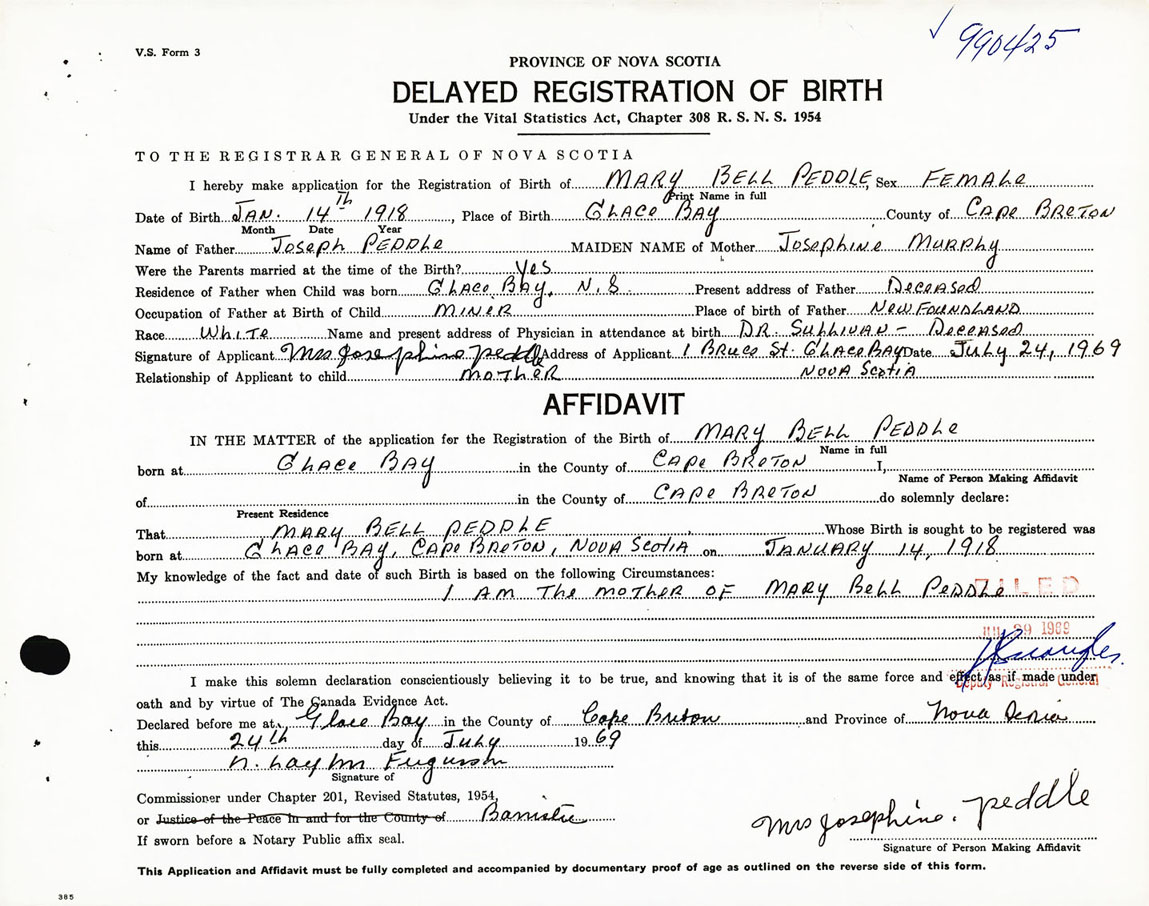 V.S. Form 3
990425
PROVINCE OF NOVA SCOTIA
DELAYED REGISTRATION OF BIRTH
Under the Vital Statistics Act, Chapter 308 R. S. N. S. 1954
TO THE REGISTRAR GENERAL OF NOVA SCOTIA
I hereby make application for the Registration of Birth of MARY BELL PEDDLE, Sex FEMALE
Print Name in full
Date of Birth JAN. 14TH 1918, Place of Birth GLACE BAY County of CAPE BRETON
Month Date Year
Name of Father JOSEPH PEDDLE MAIDEN NAME of Mother JOSEPHINE MURPHY
Were the Parents married at the time of the Birth? YES
Residence of Father when Child was born GLACE BAY, N.S. Present address of Father DECEASED
Occupation of Father at Birth of Child MINER Place of birth of Father NEWFOUNDLAND
Race WHITE Name and present address of Physician in attendance at birth DR. SULLIVAN - DECEASED
Signature of Applicant Mrs Josephine Peddle Address of Applicant 1 BRUCE ST. GLACE BAY Date JULY 24, 1969
Relationship of Applicant to child MOTHER NOVA SCOTIA
AFFIDAVIT
IN THE MATTER of the application for the Registration of the Birth of MARY BELL PEDDLE
Name in full
born at GLACE BAY in the County of CAPE BRETON I,
Name of Person Making Affidavit
of in the County of CAPE BRETON do solemnly declare:
Present Residence
That MARY BELL PEDDLE, Whose Birth is sought to be registered was
born at GLACE BAY, CAPE BRETON, NOVA SCOTIA on JANUARY 14, 1918
My knowledge of the fact and date of such Birth is based on the following Circumstances:
I AM THE MOTHER OF MARY BELL PEDDLE
FILED
JUL 29 1969
Deputy Registrar General
I make this solemn declaration conscientiously believing it to be true, and knowing that it is of the same force and effect as if made under
oath and by virtue of The Canada Evidence Act.
Declared before me at, Glace Bay in the County of Cape Breton and Province of Nova Scotia
this 24th day of July 1969
Fergusson
Signature of
Commissioner under Chapter 201, Revised Statutes, 1954,
or Justice of the Peace in and for the County of Barrister
If sworn before a Notary Public affix seal.
Mrs Josephine. Peddle
Signature of Person Making Affidavit
This Application and Affidavit must be fully completed and accompanied by documentary proof of age as outlined on the reverse side of this form.
385